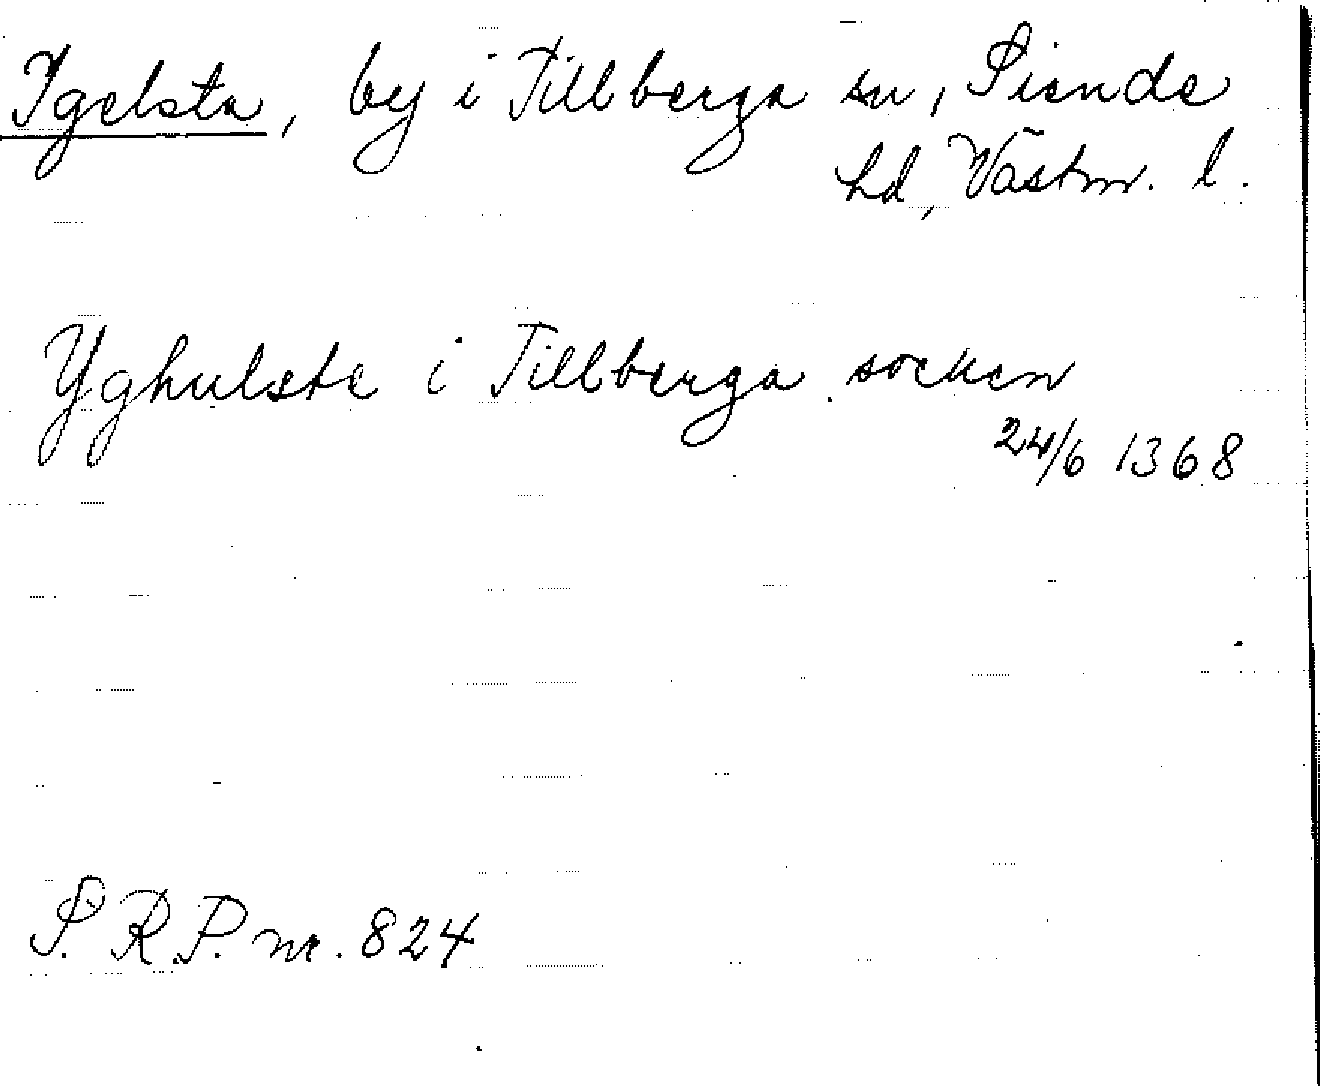 Igelsta, by i Tillberga sn, Siende
hd, Västm. l.
Yghulsta i Tillberga socken
24/6 1368
S.R.P. nr. 824